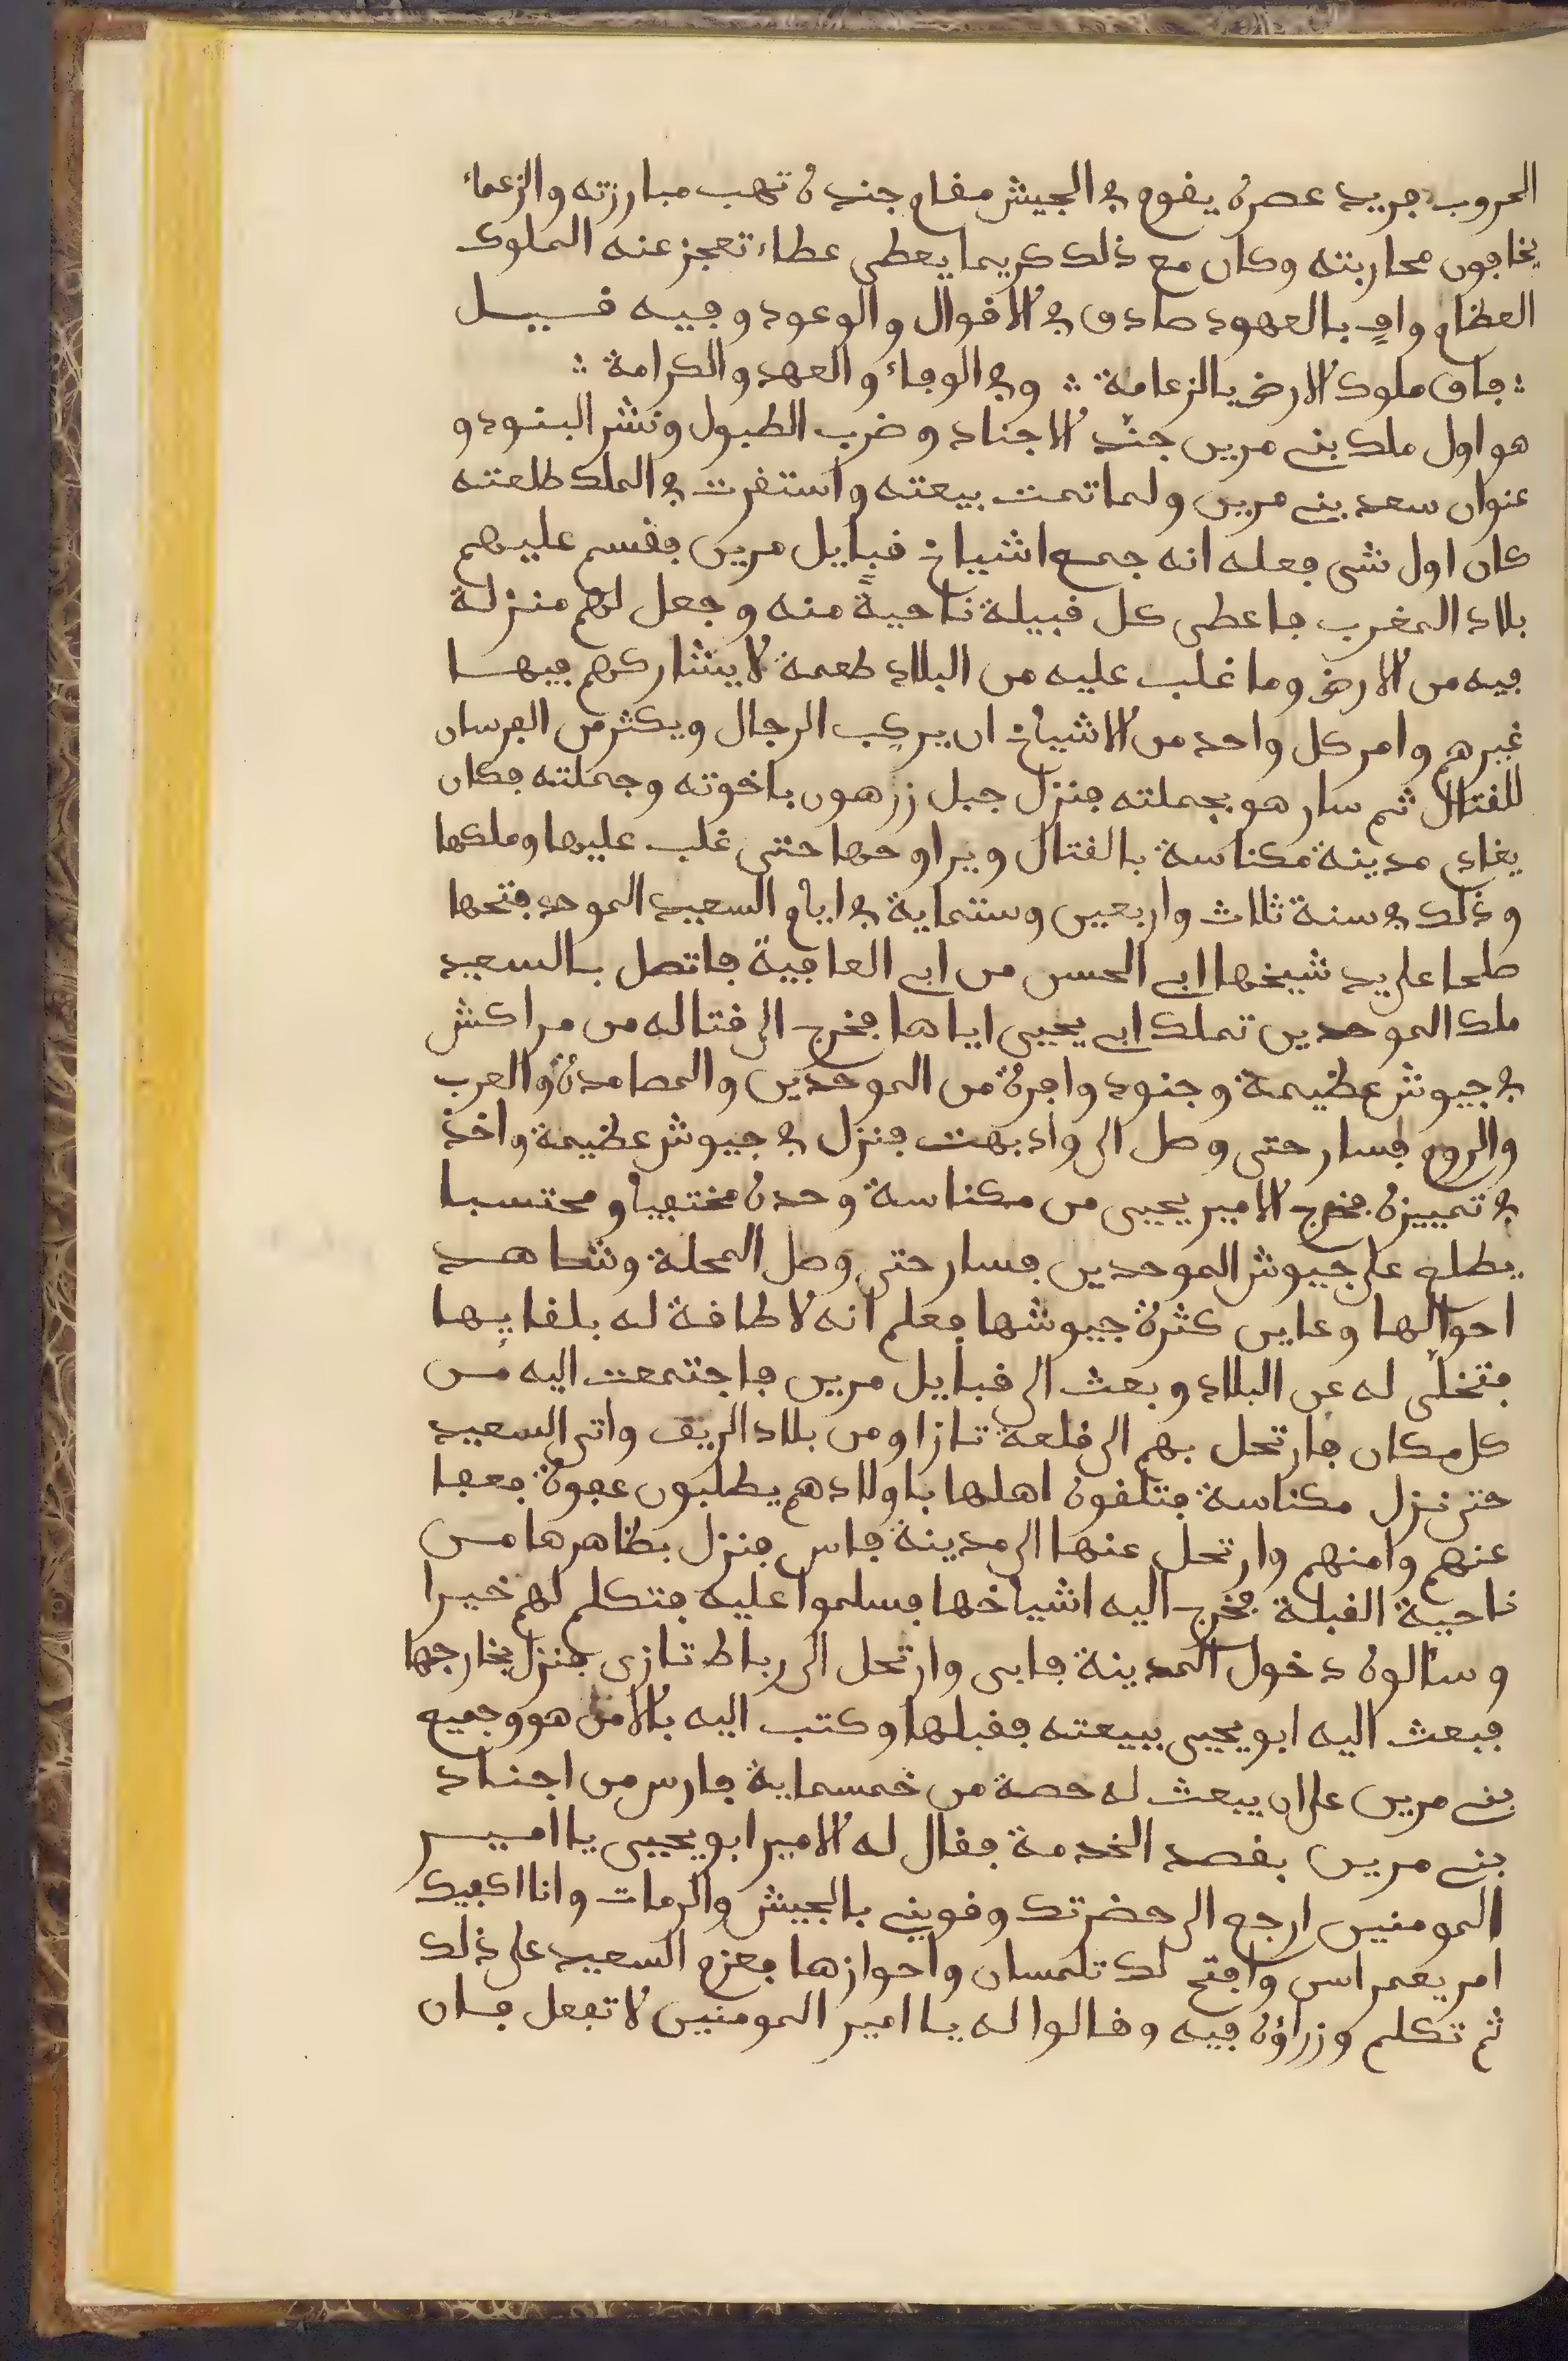 الحروب فريد عصره يقوم في الجيش مقام جنده تهب مبارزته والزعماء
يخافون محاربته وكان مع ذلك كريما يعطى عطاء تعجز عنه الملوك
العظام وافٍ بالعهود صادق في الاقوال والوعود وفيه قيل
∴ فاق ملوك الارض بالزعامة ∴ وفي الوفاء والعهد والكرامة ∴
هو اول ملك بني مرين جنّد الاجناد وضرب الطبول ونشر البنود و
عنوان سعد بني مرين ولما تمت بيعته واستقرت في الملك طلعته
كان اول شى فعله انه جمع اشياخ قبايل مرين فقسم عليهم
بلاد المغرب فاعطى كل قبيلة ناحيةً منه وجعل لهم منزلة
فيه من الارض وما غلب عليه من البلاد طعمة لا يشاركهم فيها
غيرهم وامر كل واحد من الاشياخ ان يركب الرجال ويكثر من الفرسان
للقتال ثم سار هو بجملته فنزل جبل زرهون باخوته وجملته فكان
يغادى مدينة مكناسة بالقتال ويراوحها حتى غلب عليها وملكها
وذلك في سنة ثلاث واربعين وستماية في ايام السعيد الموحد فتحها
صلحا على يد شيخها ابى الحسن من ابى العافية فاتصل بالسعيد
ملك الموحدين تملك ابى يحيى اياها فخرج الى قتاله من مراكش
في جيوش عظيمة وجنود وافرة من الموحدين والمصامدة والعرب
والروم فسار حتى وصل الى واد بهت فنزل في جيوش عظيمة واخذ
في تمييزه فخرج الامير يحيى من مكناسة وحده مختفيا ومحتسبا
يطلع على جيوش الموحدين فسار حتى وصل المحلة وشاهد
احوالها وعاين كثرة جيوشها فعلم انه لا طاقة له بلقايها
فتخلّى له عن البلاد وبعث الى قبايل مرين فاجتمعت اليه من
كل مكان فارتحل بهم الى قلعة تازا ومن بلاد الريف واتى السعيد
حتى نزل مكناسة فتلقوه اهلها باولادهم يطلبون عفوه فعفا
عنهم وامنهم وارتحل عنها الى مدينة فاس فنزل بظاهرها من
ناحية القبلة فخرج اليه اشياخها فسلموا عليه فتكلم لهم خيرا
وسالوه دخول المدينة فابى وارتحل الى رباط تازى فنزل بخارجها
فبعث اليه ابو يحيى ببيعته فقبلها وكتب اليه بالامن هو وجميع
بني مرين على ان يبعث له حصة من خمسماية فارس من اجناد
بني مرين بقصد الخدمة فقال له الامير ابو يحيى يا امير
المومنين ارجع الى حضرتك وقويني بالجيش والرمات وانا اكفيك
امر يغمراسن وافتح لك تلمسان واحوازها فعزم السعيد على ذلك
ثم تكلم وزراؤه فيه وقالوا له يا امير المومنين لا تفعل فان